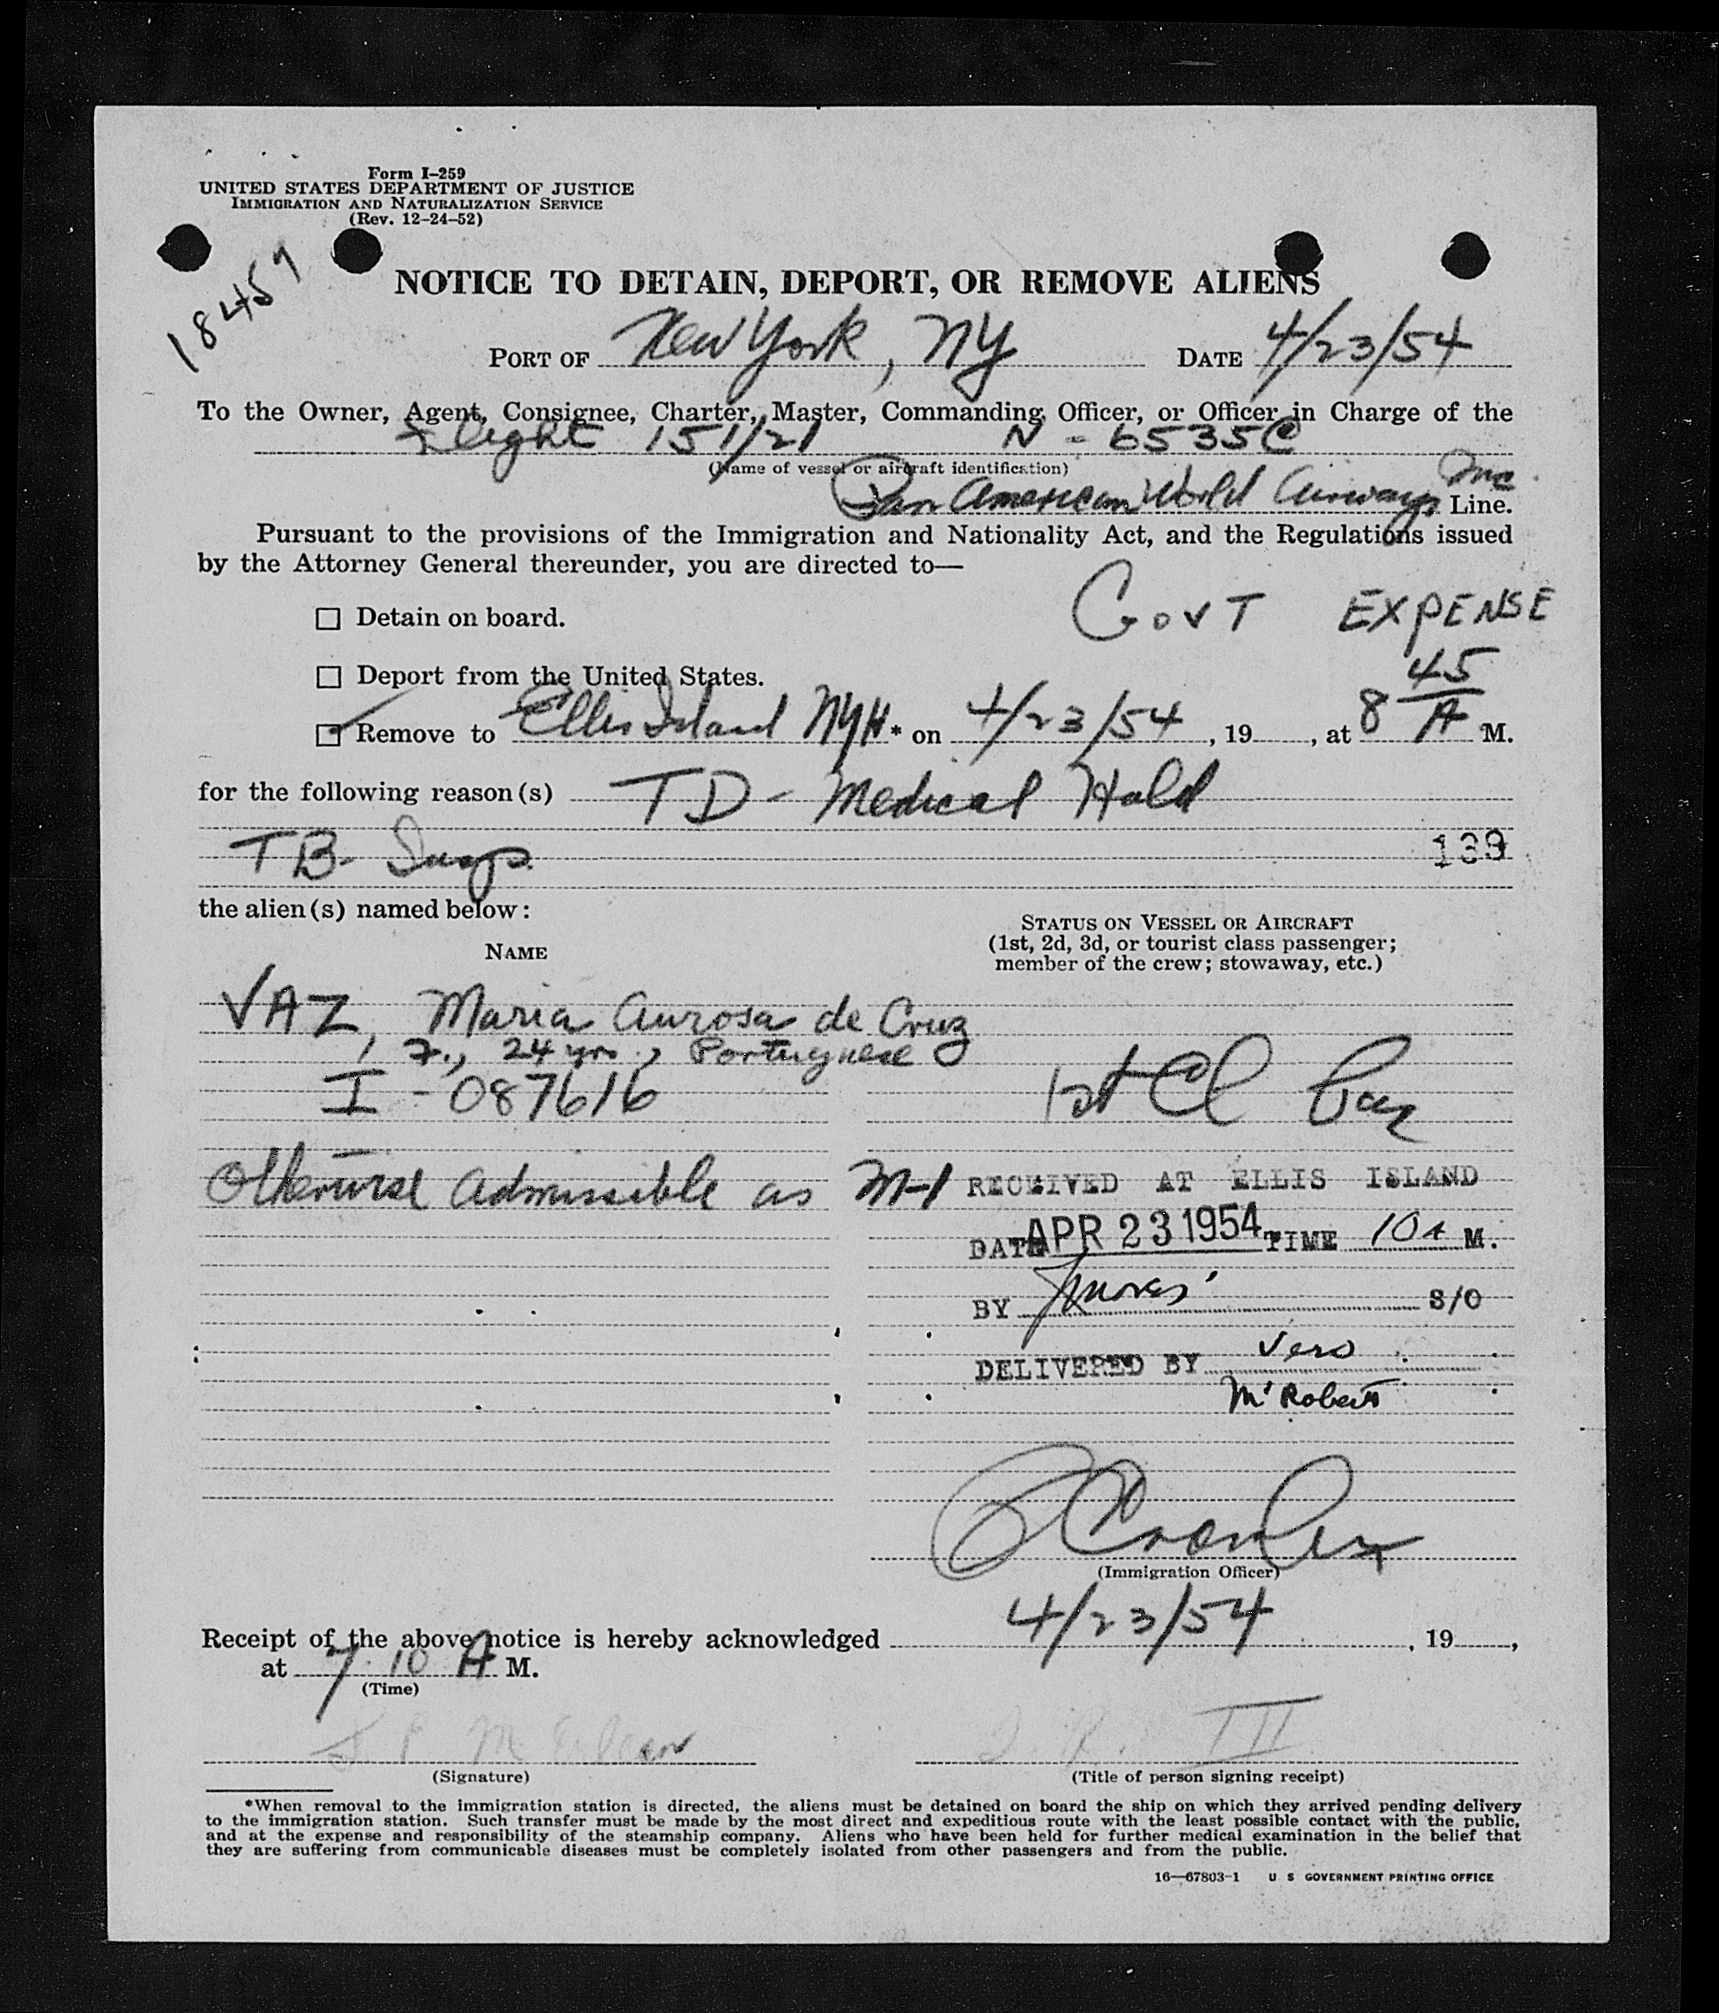 Form I-259
UNITED STATES DEPARTMENT OF JUSTICE
IMMIGRATION AND NATURALIZATION SERVICE
(Rev. 12-24-52)
18459
NOTICE TO DETAIN, DEPORT, OR REMOVE ALIENS
PORT OF New York, NY DATE 4/23/54
To the Owner, Agent, Consignee, Charter, Master, Commanding Officer, or Officer in Charge of the
Flight 151/21 N - 6535C
(Name of vessel or aircraft identification)
Pan American World Airways Inc Line.
Pursuant to the provisions of the Immigration and Nationality Act, and the Regulations issued
by the Attorney General thereunder, you are directed to—
GOVT EXPENSE
☐ Detain on board.
☐ Deport from the United States.
☑ Remove to Ellis Island NYH* on 4/23/54, 19 , at 8 45 A M.
for the following reason(s) TD - Medical Hold
TB- Susp. 139
the alien(s) named below:
NAME
STATUS ON VESSEL OR AIRCRAFT
(1st, 2d, 3d, or tourist class passenger;
member of the crew; stowaway, etc.)
VAZ, Maria Aurosa de Cruz
F., 24 yrs., Portuguese
I - 087616
1st Cl Pax
Otherwise admissible as M-1
RECEIVED AT ELLIS ISLAND
DATE APR 23 1954 TIME 10 A M.
BY S/O
DELIVERED BY Vero
McRoberts
(Immigration Officer)
Receipt of the above notice is hereby acknowledged 4/23/54, 19 ,
at 7.10 A M.
(Time)
III
(Signature)
(Title of person signing receipt)
*When removal to the immigration station is directed, the aliens must be detained on board the ship on which they arrived pending delivery
to the immigration station. Such transfer must be made by the most direct and expeditious route with the least possible contact with the public,
and at the expense and responsibility of the steamship company. Aliens who have been held for further medical examination in the belief that
they are suffering from communicable diseases must be completely isolated from other passengers and from the public.
16—67803-1 U S GOVERNMENT PRINTING OFFICE